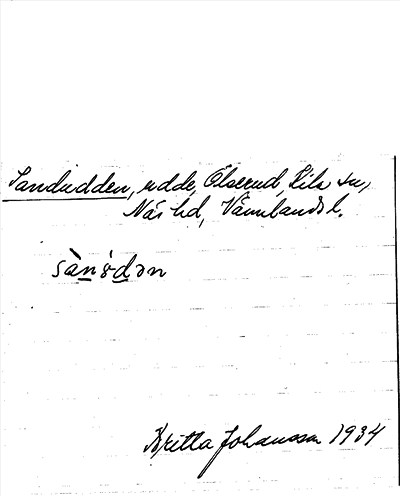 Sandudden, udde, Ölserud, Kila sn,
Näs hd, Värmlands l.
sàn̲ȯ́d̲ən
Britta Johansson 1934